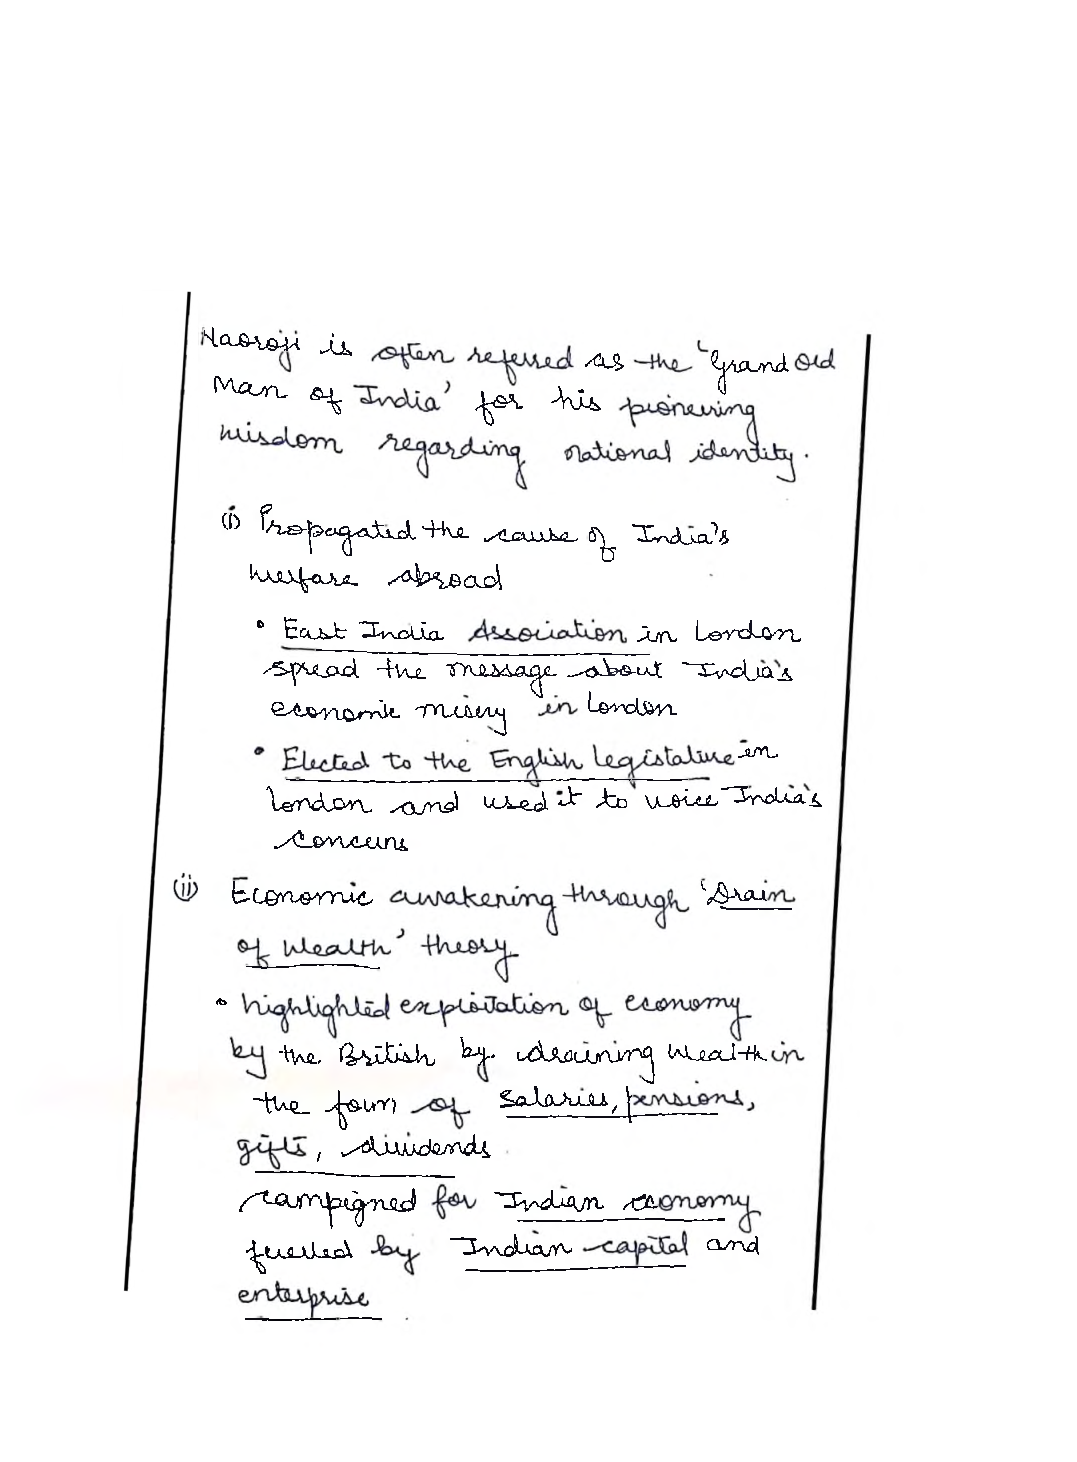 Naoroji is often referred as the 'Grand Old
Man of India' for his pioneering
wisdom regarding national identity.
(i) Propagated the cause of India's
welfare abroad
• East India Association in London
spread the message about India's
economic misery in London
• Elected to the English legislature in
London and used it to voice India's
concerns
(ii) Economic awakening through 'Drain
of Wealth' theory
• highlighted exploitation of economy
by the British by draining wealth in
the form of salaries, pensions,
gifts, dividends
campigned for Indian economy
fuelled by Indian capital and
enterprise